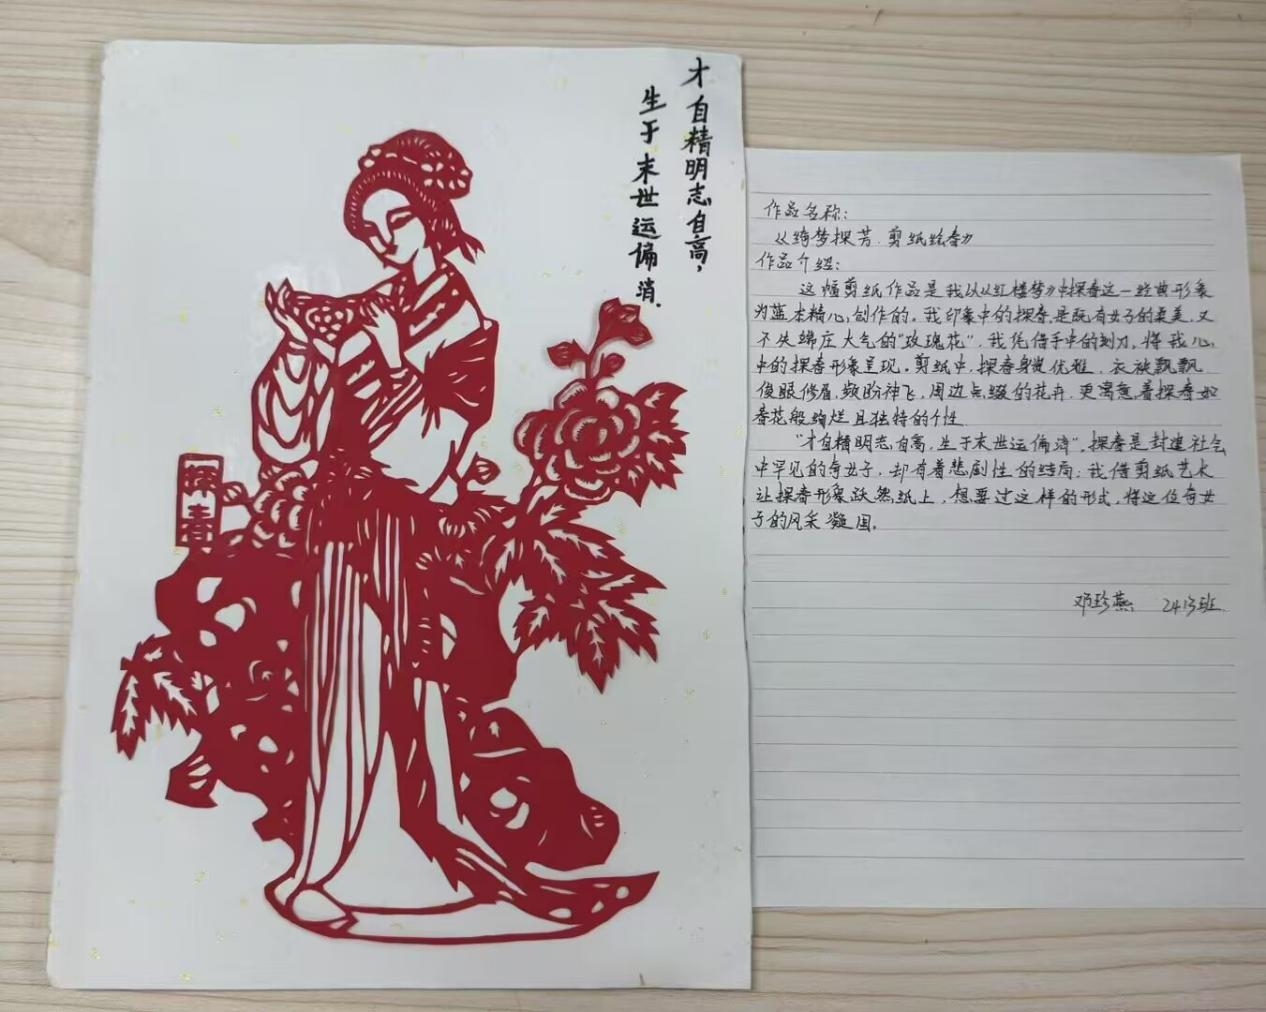 才自精明志自高，
生于末世运偏消.
探春
作品名称:
《绮梦探芳·剪纸绘春》
作品介绍:
这幅剪纸作品是我以《红楼梦》中探春这一经典形象
为蓝本精心创作的。我印象中的探春是既有女子的柔美,又
不失端庄大气的"玫瑰花"，我凭借手中的刻刀，将我心
中的探春形象呈现。剪纸中，探春身姿优雅，衣袂飘飘
俊眼修眉，顾盼神飞，周边点缀的花卉，更寓意着探春如
春花般绚烂且独特的个性.
"才自精明志自高，生于末世运偏消"。探春是封建社会
中罕见的奇女子，却有着悲剧性的结局；我借剪纸艺术
让探春形象跃然纸上，想要过这样的形式，将这位奇女
子的风采凝固。
邓珍燕 2413班